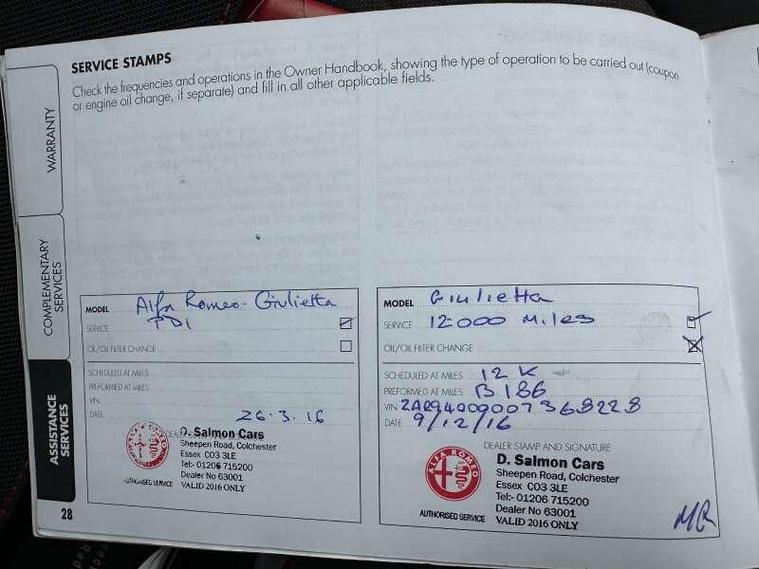 SERVICE STAMPS
Check the frequencies and operations in the Owner Handbook, showing the type of operation to be carried out (coupon
or engine oil change, if separate) and fill in all other applicable fields.
WARRANTY
COMPLEMENTARY
SERVICES
ASSISTANCE
SERVICES
MODEL Alfa Romeo - Giulietta
SERVICE PDI
OIL/OIL FILTER CHANGE
SCHEDULED AT MILES
PREFORMED AT MILES
VIN
DATE 26.3.16
D. Salmon Cars
Sheepen Road, Colchester
Essex CO3 3LE
Tel:- 01206 715200
Dealer No 63001
AUTHORISED SERVICE VALID 2016 ONLY
28
MODEL Giulietta
SERVICE 12000 Miles
OIL/OIL FILTER CHANGE
SCHEDULED AT MILES 12K
PREFORMED AT MILES 8186
VIN
DATE 9/12/16
DEALER STAMP AND SIGNATURE
ALFA ROMEO
D. Salmon Cars
Sheepen Road, Colchester
Essex CO3 3LE
Tel:- 01206 715200
Dealer No 63001
AUTHORISED SERVICE VALID 2016 ONLY